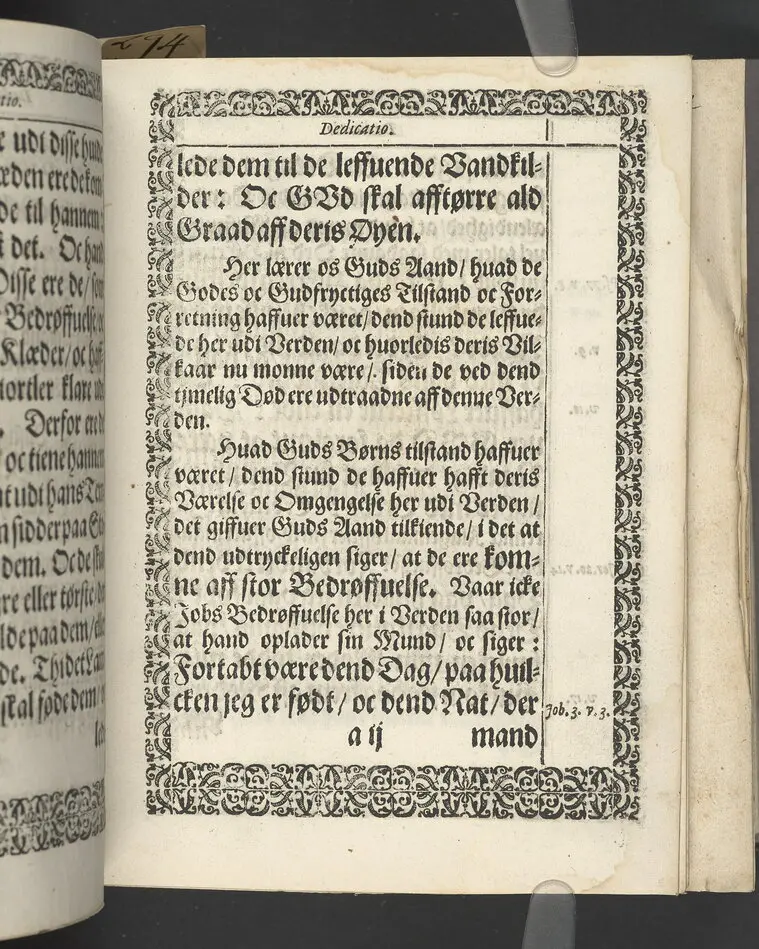 274
tio.
e udi disse hvide
den ere de kom
de til hannem:
det. Oc hand
Disse ere de/ som
Bedrøffuelse
Klæder/ oc haff
iortler klare udi
Derfor ere de
oc tiene hannem
t udi hans Tem
n sidder paa St
dem. Oc de skul
re eller tørste/ der
lde paa dem/ eller
de. Thi det Lam
skal føde dem/ o
led
Dedicatio.
lede dem til de leffuende Vandkil-
der: Oc GVd skal afftørre ald
Graad aff deris Øyen.
Her lærer os Guds Aand/ huad de
Godes oc Gudfryctiges Tilstand oc For-
retning haffuer været/ dend stund de leffue-
de her udi Verden/ oc huorledis deris Vil-
kaar nu monne være/. siden de ved dend
tjmelig Død ere udtraadne aff denne Ver-
den.
Huad Guds Børns tilstand haffuer
været/ dend stund de haffuer hafft deris
Værelse oc Omgengelse her udi Verden/
det giffuer Guds Aand tilkiende/ i det at
dend udtryckeligen siger/ at de ere kom-
ne aff stor Bedrøffuelse. Vaar icke
Jobs Bedrøffuelse her i Verden saa stor/
at hand oplader sin Mund/ oc siger:
Fortabt være dend Dag/ paa huil-
cken jeg er født/ oc dend Nat/ der
Job. 3. v. 3.
a ij
mand